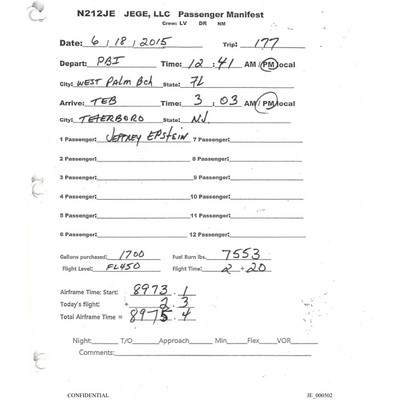 N212JE JEGE, LLC Passenger Manifest
Crew: LV DR NM
Date: 6 / 18 / 2015 Trip: 177
Depart: PBI Time: 12 : 41 AM / PM local
City: West Palm Bch State: FL
Arrive: TEB Time: 3 : 03 AM / PM local
City: TETERBORO State: NJ.
1 Passenger: Jeffrey Epstein 7 Passenger:
2 Passenger: 8 Passenger:
3 Passenger: 9 Passenger:
4 Passenger: 10 Passenger:
5 Passenger: 11 Passenger:
6 Passenger: 12 Passenger:
Gallons purchased: 1700 Fuel Burn lbs. 7553
Flight Level: FL450 Flight Time: 2 + 20
Airframe Time: Start: 8973 . 1
Today's flight: + 2 . 3
Total Airframe Time = 8975 . 4
Night: T/O Approach Min Flex VOR
Comments:
CONFIDENTIAL JE_000502